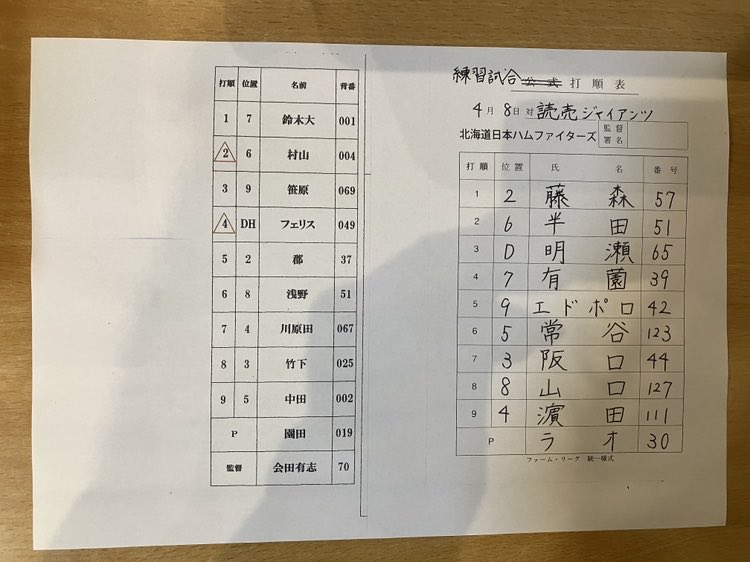 打順 位置 名前 背番
1 7 鈴木大 001
2 6 村山 004
3 9 笹原 069
4 DH フェリス 049
5 2 郡 37
6 8 浅野 51
7 4 川原田 067
8 3 竹下 025
9 5 中田 002
P 園田 019
監督 会田有志 70
練習試合 公式 打順表
4月8日対 読売ジャイアンツ
北海道日本ハムファイターズ 監督署名
打順 位置 氏名 番号
1 2 藤森 57
2 6 半田 51
3 D 明瀬 65
4 7 有薗 39
5 9 エドポロ 42
6 5 常谷 123
7 3 阪口 44
8 8 山口 127
9 4 濵田 111
P ラオ 30
ファーム・リーグ 統一様式